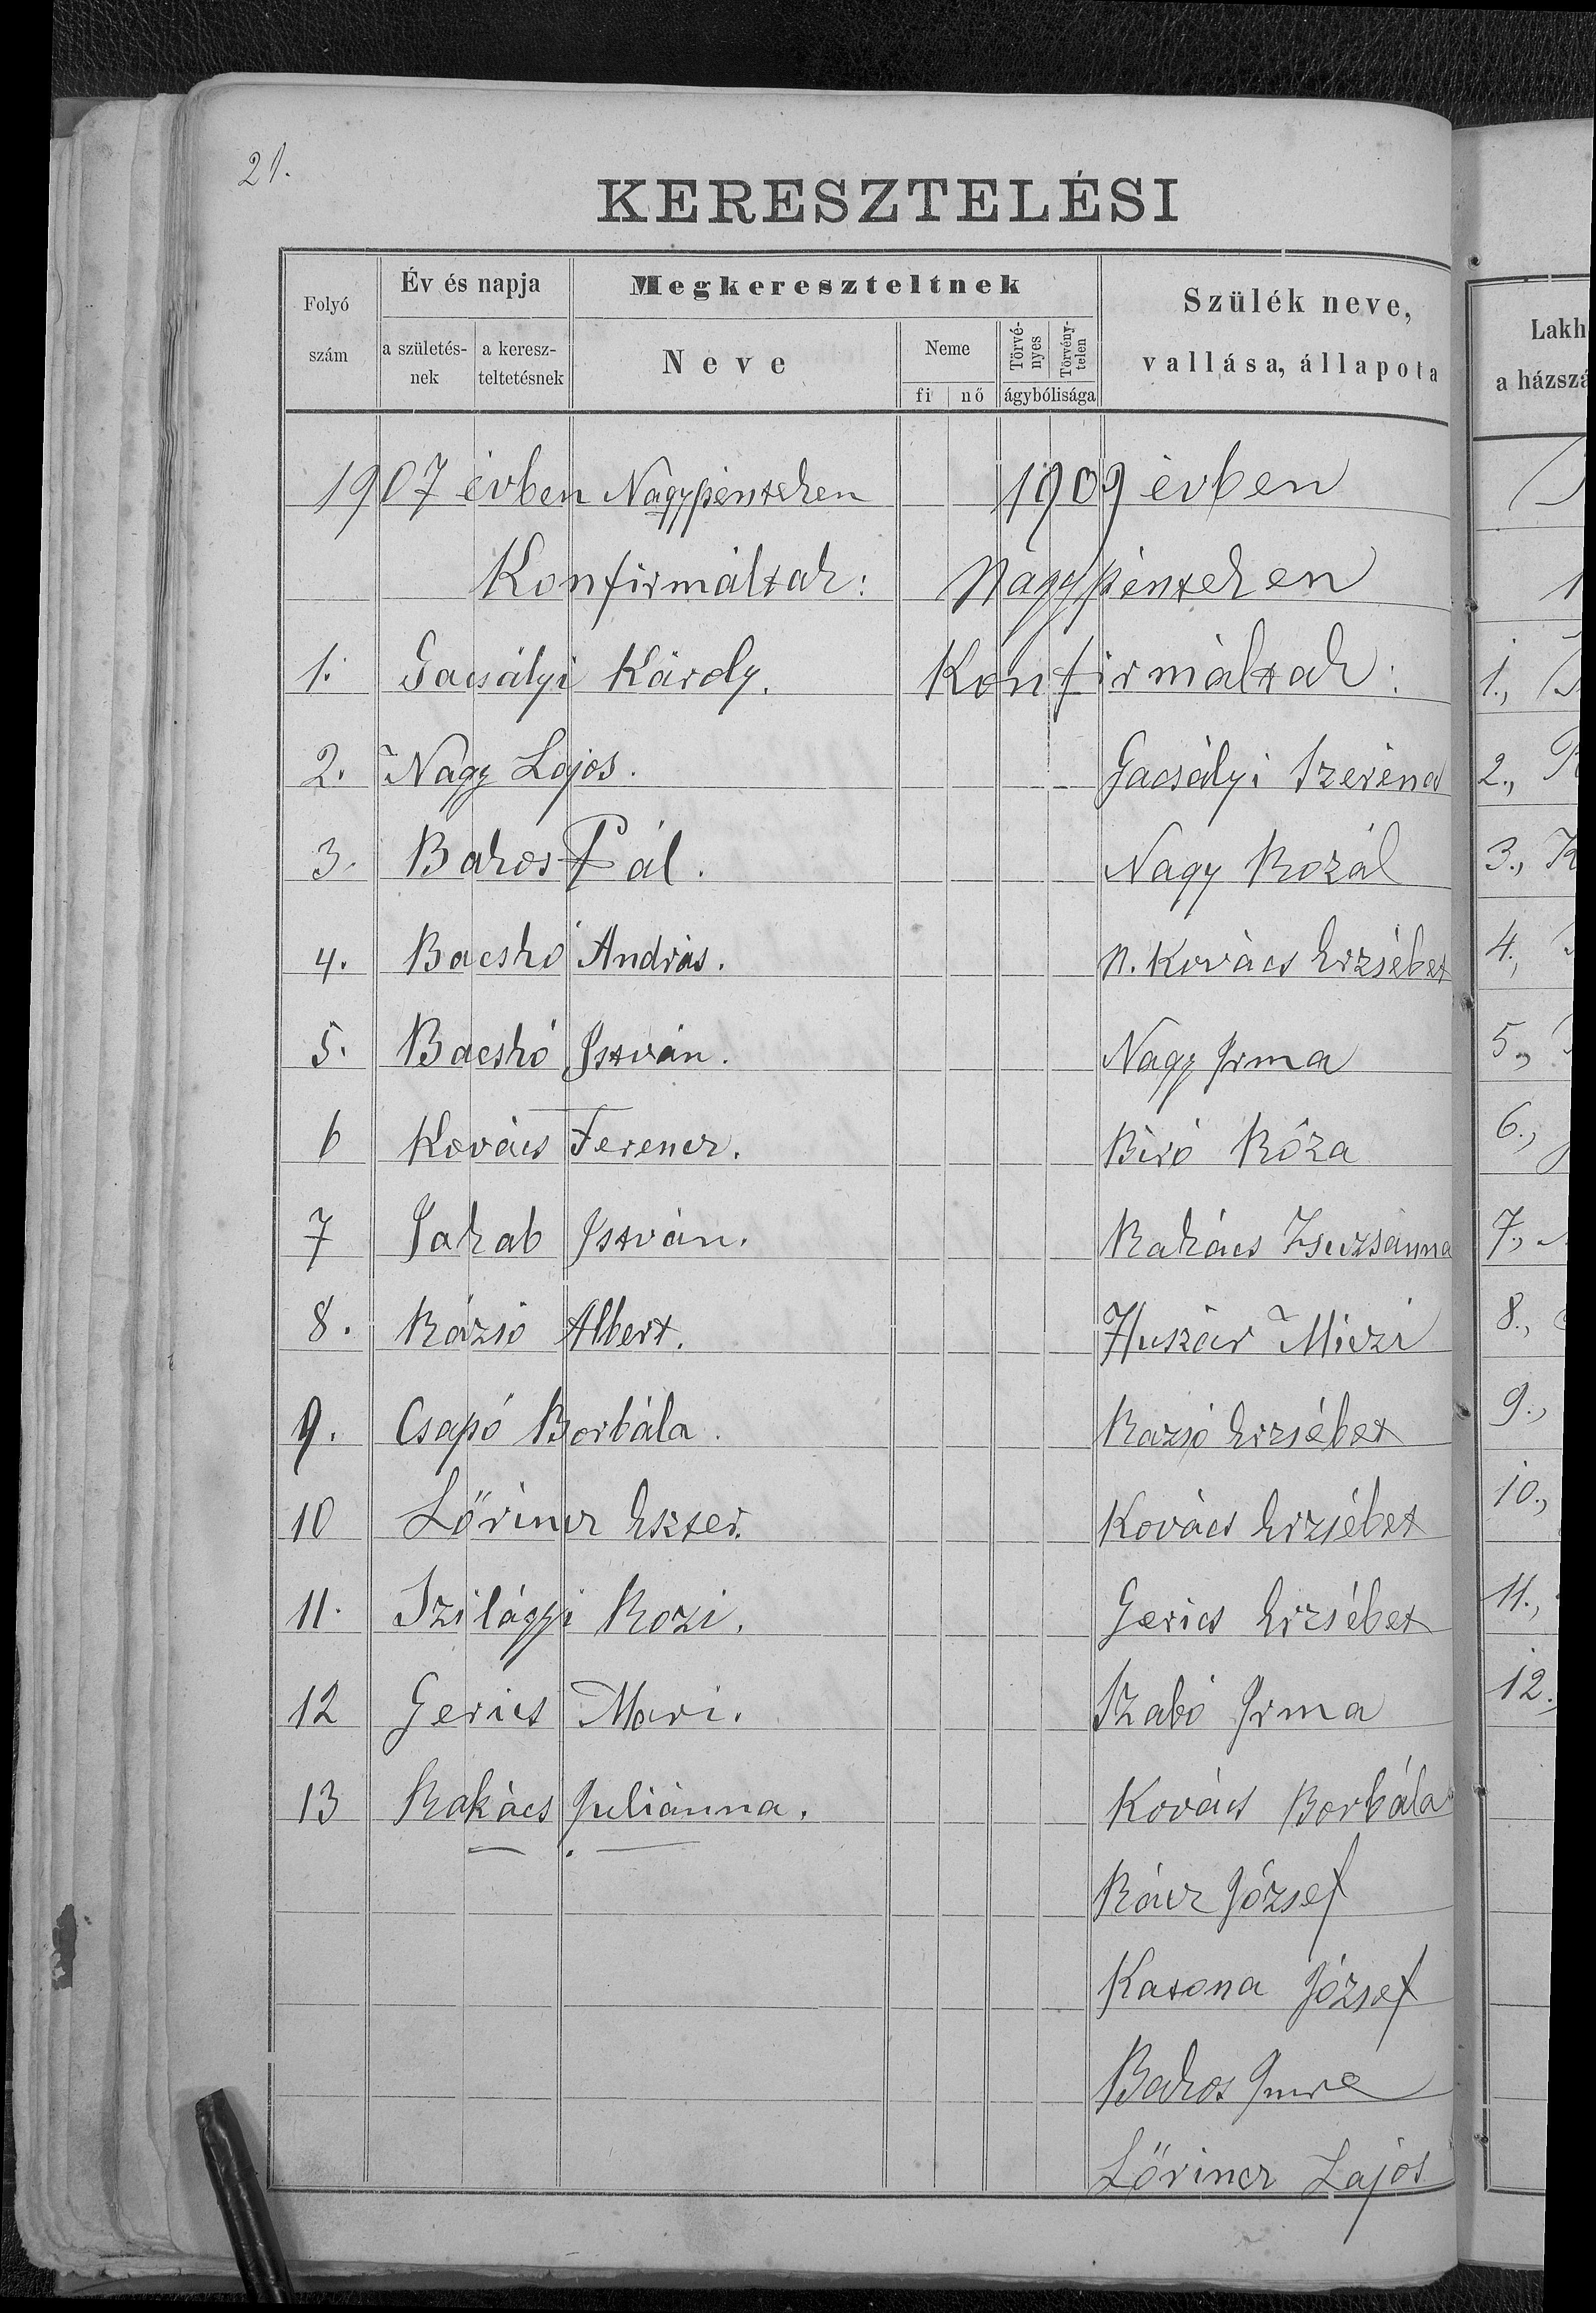 21.
KERESZTELÉSI
Folyó szám
Év és napja
a születés-nek
a keresz-teltetésnek
Megkereszteltnek
Neve
Neme
fi
nő
Törvé-nyes
Törvény-telen
ágybólisága
Szülék neve,
vallása, állapota
1907 évben Nagypénteken
Konfirmáltak:
1. Gacsályi Károly.
2. Nagy Lajos.
3. Bakos Pál.
4. Bacskó András.
5. Bacskó István.
6 Kovács Ferencz.
7 Jakab István.
8. Rázsó Albert.
9. Csapó Borbála.
10 Lőrincz Eszter.
11. Szilágyi Rozi.
12 Gerics Mari.
13 Rakács Juliánna.
1909 évben
Nagypénteken
Konfirmáltak:
Gacsályi Szeréna
Nagy Rozál
N. Kovács Erzsébet
Nagy Irma
Biró Róza
Rakács Zsuzsánna
Huszár Miczi
Razsó Erzsébet
Kovács Erzsébet
Gerics Erzsébet
Szabó Irma
Kovács Borbála
Rácz József
Katona József
Bakos Imre
Lőrincz Lajos
Lakh
a házszá
1.,
2.,
3., K
4.,
5.,
6.,
7.,
8.,
9.,
10.,
11.,
12.,